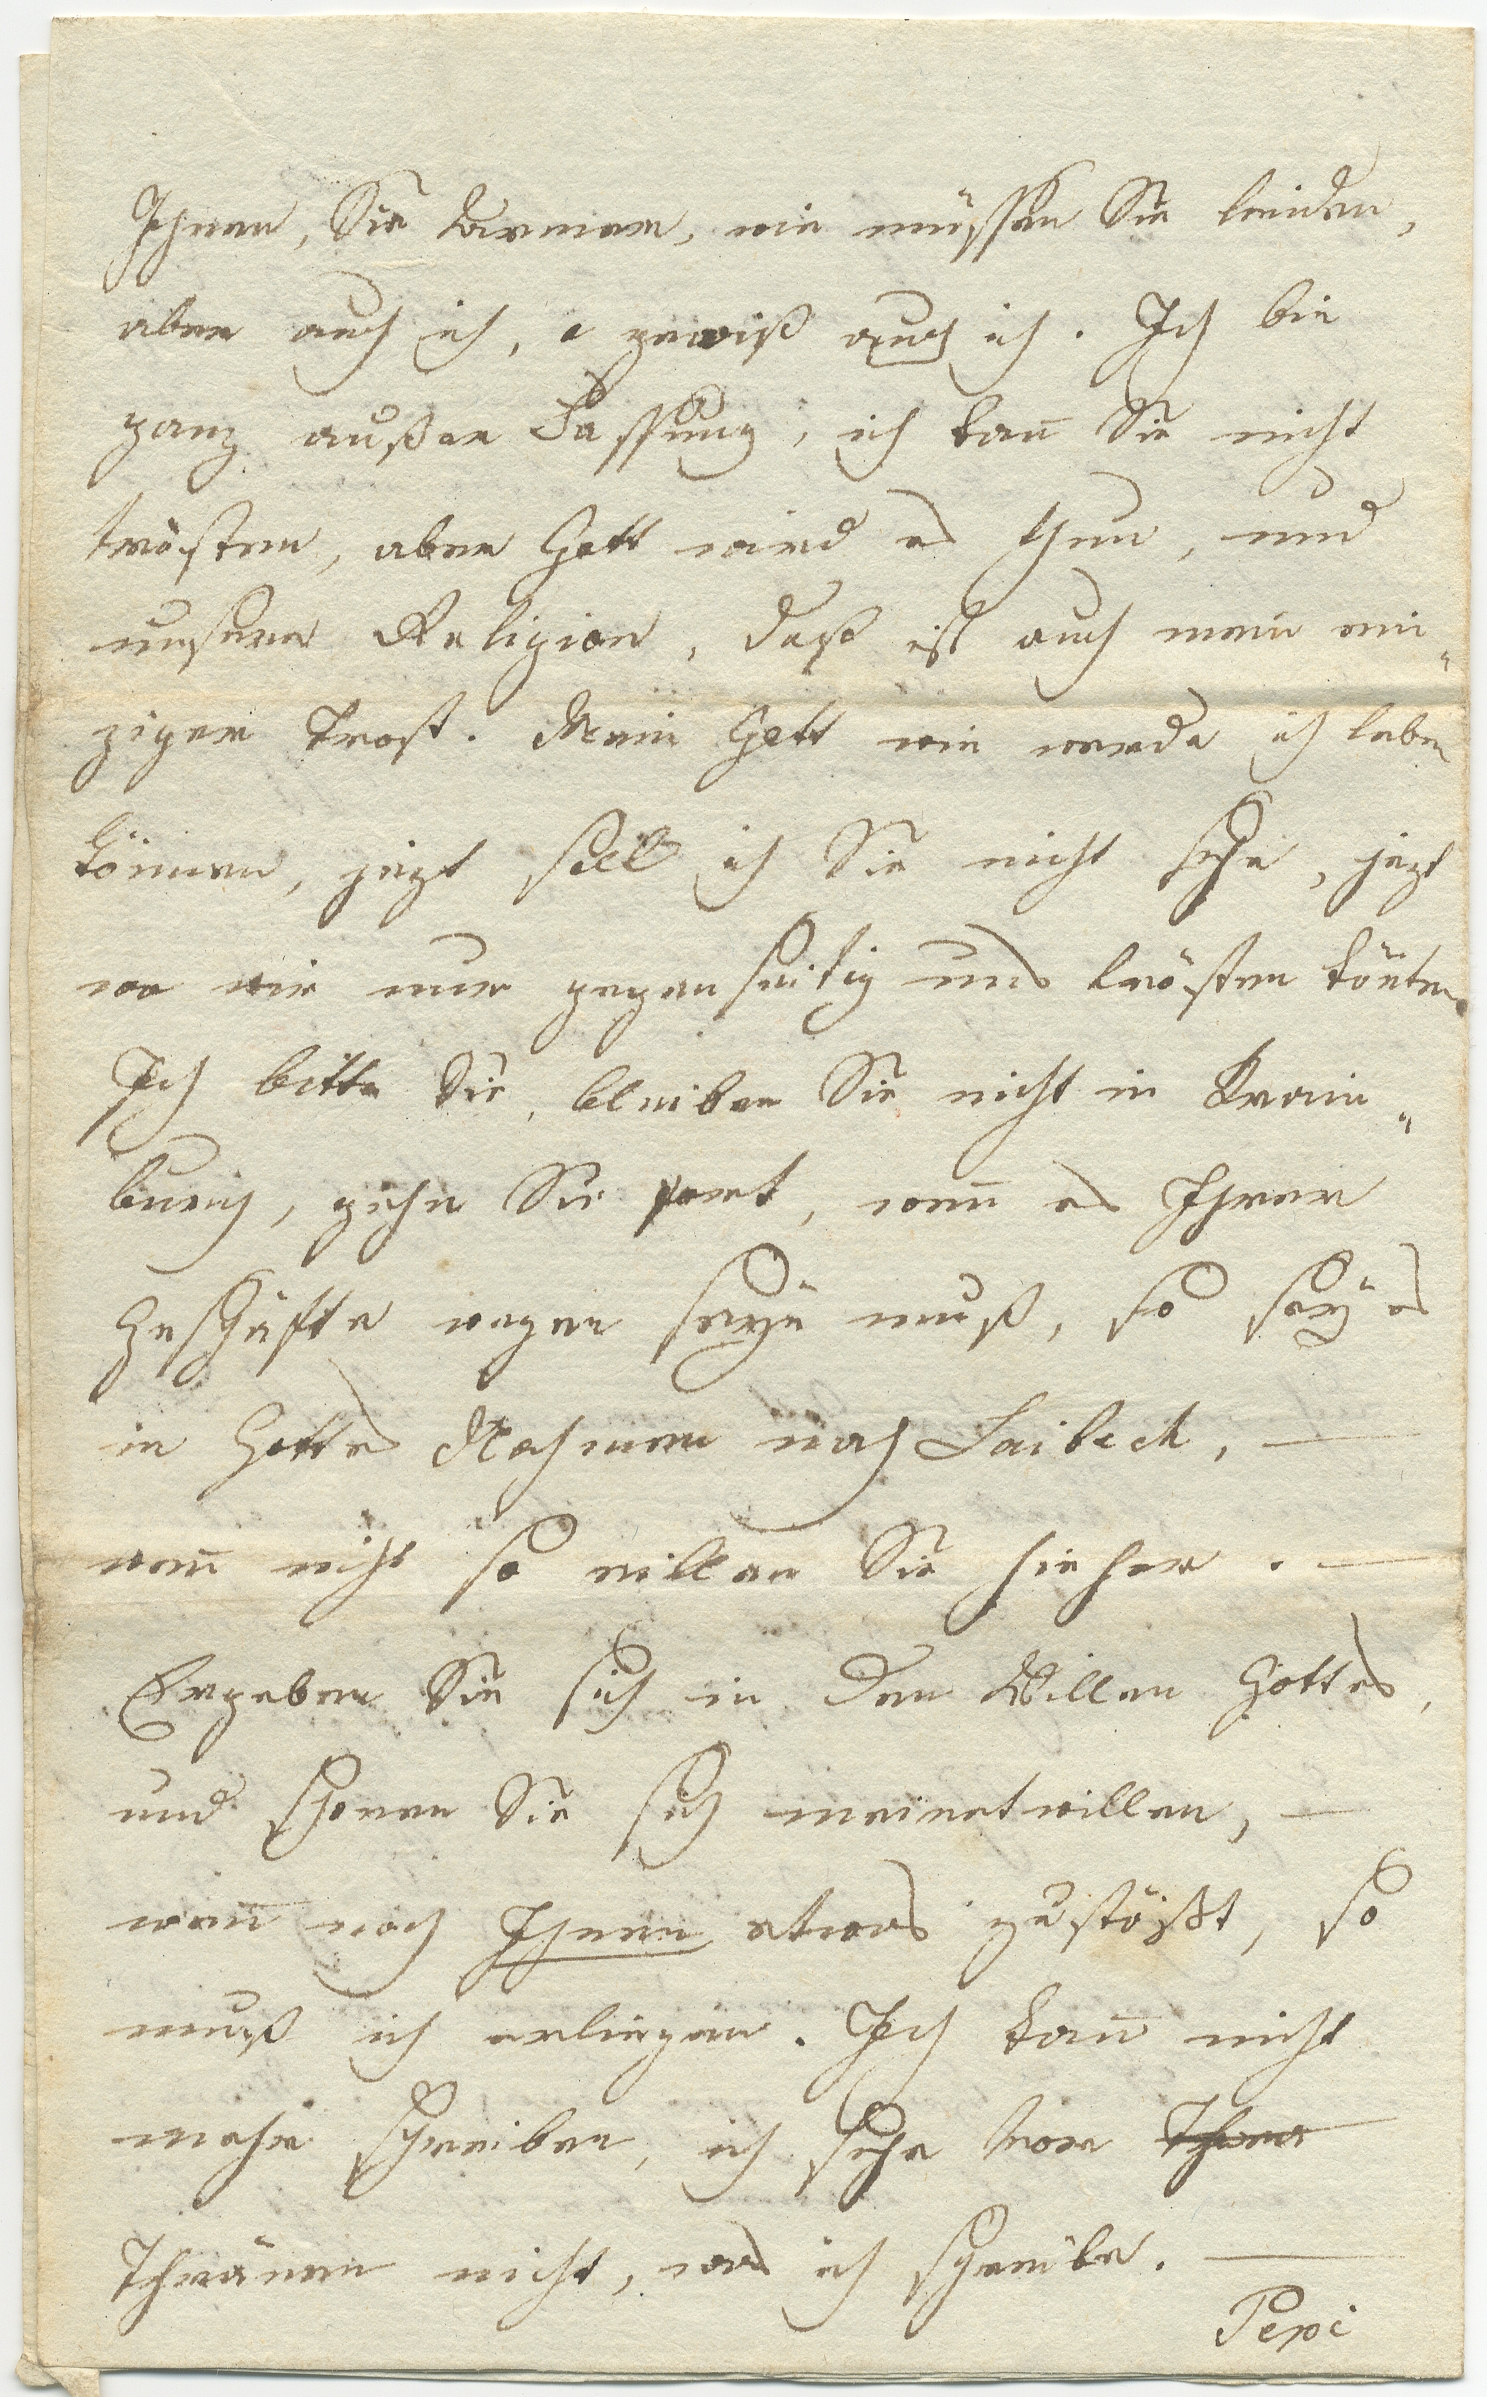 Ihnen, Sie Armer, wie müssen Sie leiden,
aber auch ich, o gewiß auch ich. Ich bin
ganz außer Fassung, ich kan̄ Sie nicht
trösten, aber Gott wird es thun, und
unsere Religion, daß ist auch mein ein„
ziger Trost. Mein Gott wie werde ich leben
können, jezt soll ich Sie nicht sehn, jezt
wo wir nur gegenseitig uns trösten kön̄ten.
Ich bitte Sie, bleiben Sie nicht in Krain„
burg, gehn Sie fort, wen̄ es Ihrer
Geschäfte wegen seyn muß, so seÿ es
in Gottes Nahmen nach Laibach, —
wen̄ nicht so eillen Sie hieher. —
Ergeben Sie sich in den Willen Gottes,
und schonen Sie sich meinetwillen, —
wen̄ noch Ihnen etwas zustößt, so
muß ich erliegen. Ich kan̄ nicht
mehr schreiben, ich sehe vor Thren
Thränen nicht, was ich schreibe. —
Pepi